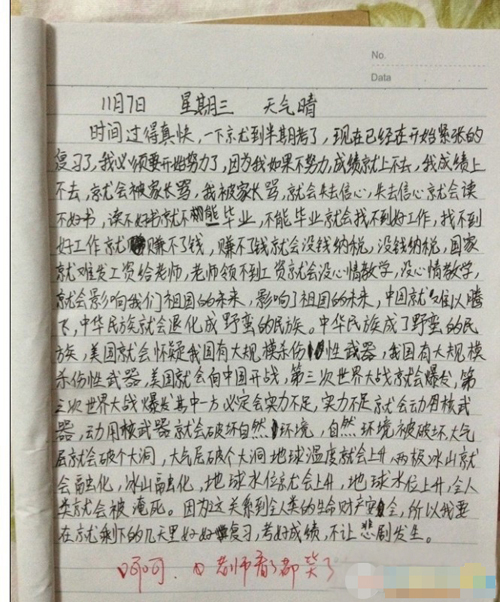 No.
Data
11月7日 星期三 天气晴
时间过得真快,一下就到半期考了,现在已经在开始紧张的
复习了,我必须要开始努力了,因为我如果不努力,成绩就上不去,我成绩上
不去,就会被家长骂,我被家长骂,就会失去信心,失去信心就会读
不好书,读不好书就不能毕业,不能毕业就会找不到好工作,找不到
好工作就赚不了钱,赚不了钱就会没钱纳税,没钱纳税,国家
就难发工资给老师,老师领不到工资就会没心情教学,没心情教学,
就会影响我们祖国的未来,影响了祖国的未来,中国就难以腾
飞,中华民族就会退化成野蛮的民族。中华民族成了野蛮的民
族,美国就会怀疑我国有大规模杀伤性武器,我国有大规模
杀伤性武器,美国就会向中国开战,第三次世界大战就会爆发,第
三次世界大战爆发其中一方必定会实力不足,实力不足就会动用核武
器,动用核武器就会破坏自然环境,自然环境被破坏,大气
层就会破个大洞,大气层破个大洞地球温度就会上升,两极冰山就
会融化,冰山融化,地球水位就会上升,地球水位上升,全人
类就会被淹死。因为这关系到全人类的生命财产安全,所以我要
在就剩下的几天里好好复习,考好成绩,不让悲剧发生。
呵呵,老师看了都笑了